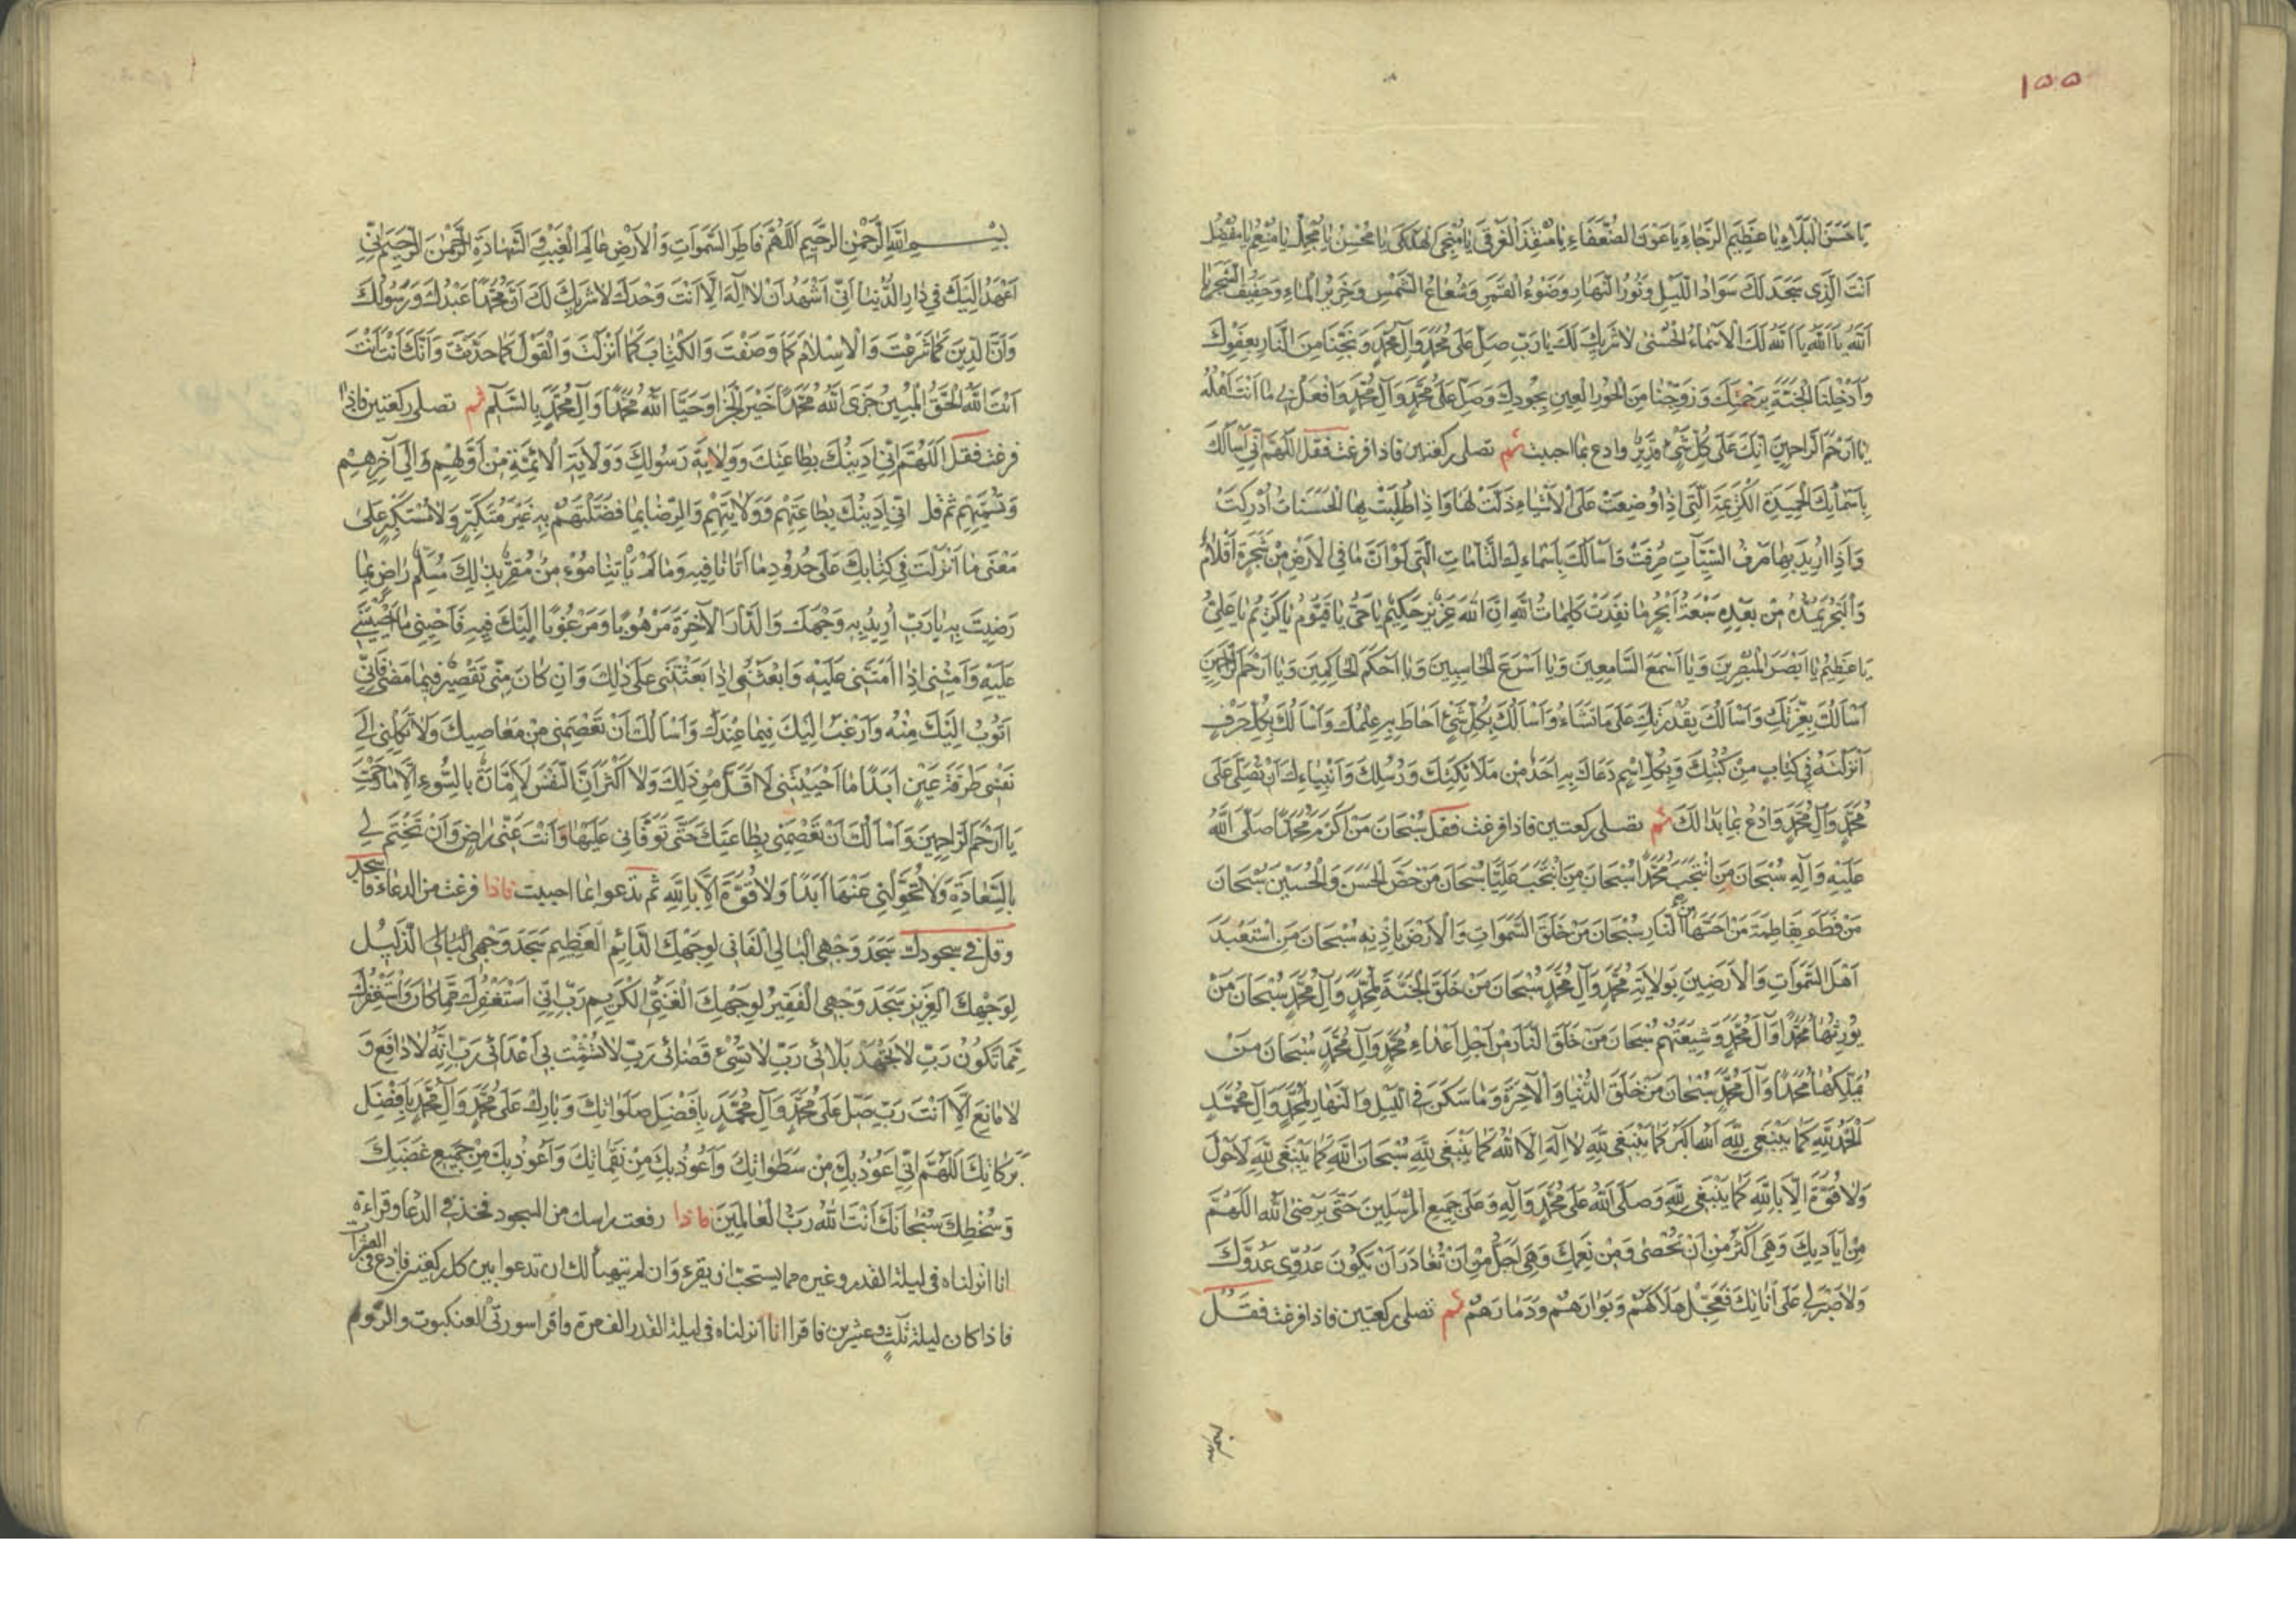 ١٥٥
يَا حَسَنَ الْبَلَاءِ يَا عَظِيمَ الرَّجَاءِ يَا عَوْنَ الضُّعَفَاءِ يَا مُنْقِذَ الْغَرْقَى يَا مُنْجِيَ الْهَلْكَى يَا مُحْسِنُ يَا مُجْمِلُ يَا مُنْعِمُ يَا مُفْضِلُ
اَنْتَ الَّذِي سَجَدَ لَكَ سَوَادُ اللَّيْلِ وَنُورُ النَّهَارِ وَضَوْءُ الْقَمَرِ وَشُعَاعُ الشَّمْسِ وَخَرِيرُ الْمَاءِ وَحَفِيفُ الشَّجَرِ يَا
اَللّٰهُ يَا اَللّٰهُ يَا اَللّٰهُ لَكَ الْاَسْمَاءُ الْحُسْنٰى لَا شَرِيكَ لَكَ يَا رَبِّ صَلِّ عَلَى مُحَمَّدٍ وَآلِ مُحَمَّدٍ وَنَجِّنَا مِنَ النَّارِ بِعَفْوِكَ
وَاَدْخِلْنَا الْجَنَّةَ بِرَحْمَتِكَ وَزَوِّجْنَا مِنَ الْحُورِ الْعِينِ بِجُودِكَ وَصَلِّ عَلَى مُحَمَّدٍ وَآلِ مُحَمَّدٍ وَافْعَلْ بِي مَا اَنْتَ اَهْلُهُ
يَا اَرْحَمَ الرَّاحِمِينَ اِنَّكَ عَلَى كُلِّ شَيْءٍ قَدِيرٌ وادع بما احببت ثم تصلى ركعتين فاذا فرغت فقل اَللّٰهُمَّ اِنِّي اَسْاَلُكَ
بِاَسْمَائِكَ الْحَمِيدَةِ الْكَرِيمَةِ الَّتِي اِذَا وُضِعَتْ عَلَى الْاَشْيَاءِ ذَلَّتْ لَهَا وَاِذَا طُلِبَتْ بِهَا الْحَسَنَاتُ اُدْرِكَتْ
وَاِذَا اُرِيدَ بِهَا صَرْفُ السَّيِّئَاتِ صُرِفَتْ وَاَسْاَلُكَ بِاَسْمَاءِكَ التَّامَّاتِ الَّتِي لَوْ اَنَّ مَا فِي الْاَرْضِ مِنْ شَجَرَةٍ اَقْلَامٌ
وَالْبَحْرُ يَمُدُّهُ مِنْ بَعْدِهِ سَبْعَةُ اَبْحُرٍ مَا نَفِدَتْ كَلِمَاتُ اللّٰهِ اِنَّ اللّٰهَ عَزِيزٌ حَكِيمٌ يَا حَيُّ يَا قَيُّومُ يَا كَرِيمُ يَا عَلِيُّ
يَا عَظِيمُ يَا اَبْصَرَ الْمُبْصِرِينَ وَيَا اَسْمَعَ السَّامِعِينَ وَيَا اَسْرَعَ الْحَاسِبِينَ وَيَا اَحْكَمَ الْحَاكِمِينَ وَيَا اَرْحَمَ الرَّاحِمِينَ
اَسْاَلُكَ بِعِزَّتِكَ وَاَسْاَلُكَ بِقُدْرَتِكَ عَلَى مَا تَشَاءُ وَاَسْاَلُكَ بِكُلِّ شَيْءٍ اَحَاطَ بِهِ عِلْمُكَ وَاَسْاَلُكَ بِكُلِّ حَرْفٍ
اَنْزَلْتَهُ فِي كِتَابٍ مِنْ كُتُبِكَ وَبِكُلِّ اسْمٍ دَعَاكَ بِهِ اَحَدٌ مِنْ مَلَائِكَتِكَ وَرُسُلِكَ وَاَنْبِيَاءِكَ اَنْ تُصَلِّيَ عَلَى
مُحَمَّدٍ وَآلِ مُحَمَّدٍ وَادْعُ بِمَا بَدَا لَكَ ثم تصلى ركعتين فاذا فرغت فقل سُبْحَانَ مَنْ اَكْرَمَ مُحَمَّدًا صَلَّى اللّٰهُ
عَلَيْهِ وَآلِهِ سُبْحَانَ مَنِ انْتَجَبَ مُحَمَّدًا سُبْحَانَ مَنِ انْتَجَبَ عَلِيًّا سُبْحَانَ مَنْ خَصَّ الْحَسَنَ وَالْحُسَيْنَ سُبْحَانَ
مَنْ فَطَمَ بِفَاطِمَةَ مَنْ اَحَبَّهَا مِنَ النَّارِ سُبْحَانَ مَنْ خَلَقَ السَّمٰوَاتِ وَالْاَرْضَ بِاِذْنِهِ سُبْحَانَ مَنِ اسْتَعْبَدَ
اَهْلَ السَّمٰوَاتِ وَالْاَرَضِينَ بِوَلَايَةِ مُحَمَّدٍ وَآلِ مُحَمَّدٍ سُبْحَانَ مَنْ خَلَقَ الْجَنَّةَ لِمُحَمَّدٍ وَآلِ مُحَمَّدٍ سُبْحَانَ مَنْ
يُورِثُهَا مُحَمَّدًا وَآلَ مُحَمَّدٍ وَشِيعَتَهُمْ سُبْحَانَ مَنْ خَلَقَ النَّارَ مِنْ اَجْلِ اَعْدَاءِ مُحَمَّدٍ وَآلِ مُحَمَّدٍ سُبْحَانَ مَنْ
يُمَلِّكُهَا مُحَمَّدًا وَآلَ مُحَمَّدٍ سُبْحَانَ مَنْ خَلَقَ الدُّنْيَا وَالْآخِرَةَ وَمَا سَكَنَ فِي اللَّيْلِ وَالنَّهَارِ لِمُحَمَّدٍ وَآلِ مُحَمَّدٍ
اَلْحَمْدُ لِلّٰهِ كَمَا يَنْبَغِي لِلّٰهِ اَللّٰهُ اَكْبَرُ كَمَا يَنْبَغِي لِلّٰهِ لَا اِلٰهَ اِلَّا اللّٰهُ كَمَا يَنْبَغِي لِلّٰهِ سُبْحَانَ اللّٰهِ كَمَا يَنْبَغِي لِلّٰهِ لَا حَوْلَ
وَلَا قُوَّةَ اِلَّا بِاللّٰهِ كَمَا يَنْبَغِي لِلّٰهِ وَصَلَّى اللّٰهُ عَلَى مُحَمَّدٍ وَآلِهِ وَعَلَى جَمِيعِ الْمُرْسَلِينَ حَتَّى يَرْضَى اللّٰهُ اَللّٰهُمَّ
مِنْ اَيَادِيكَ وَهِيَ اَكْثَرُ مِنْ اَنْ تُحْصٰى وَمِنْ نِعَمِكَ وَهِيَ اَجَلُّ مِنْ اَنْ تُغَادَرَ اَنْ يَكُونَ عَدُوِّي عَدُوَّكَ
وَلَا صَبْرَ لِي عَلَى اَنَاتِكَ فَعَجِّلْ هَلَاكَهُمْ وَبَوَارَهُمْ وَدَمَارَهُمْ ثم تصلى ركعتين فاذا فرغت فقل
بِسْمِ اللّٰهِ الرَّحْمٰنِ الرَّحِيمِ اَللّٰهُمَّ فَاطِرَ السَّمٰوَاتِ وَالْاَرْضِ عَالِمَ الْغَيْبِ وَالشَّهَادَةِ الرَّحْمٰنَ الرَّحِيمَ اِنِّي
اَعْهَدُ اِلَيْكَ فِي دَارِ الدُّنْيَا اَنِّي اَشْهَدُ اَنْ لَا اِلٰهَ اِلَّا اَنْتَ وَحْدَكَ لَا شَرِيكَ لَكَ اَنَّ مُحَمَّدًا عَبْدُكَ وَرَسُولُكَ
وَاَنَّ الدِّينَ كَمَا شَرَعْتَ وَالْاِسْلَامَ كَمَا وَصَفْتَ وَالْكِتَابَ كَمَا اَنْزَلْتَ وَالْقَوْلَ كَمَا حَدَّثْتَ وَاَنَّكَ اَنْتَ اَنْتَ
اَنْتَ اللّٰهُ الْحَقُّ الْمُبِينُ جَزَى اللّٰهُ مُحَمَّدًا خَيْرَ الْجَزَاءِ وَحَيَّا اللّٰهُ مُحَمَّدًا وَآلَ مُحَمَّدٍ بِالسَّلَامِ ثم تصلى ركعتين فاذا
فرغت فقل اَللّٰهُمَّ اِنِّي اَدِينُكَ بِطَاعَتِكَ وَوِلَايَةِ رَسُولِكَ وَوِلَايَةِ الْاَئِمَّةِ مِنْ اَوَّلِهِمْ وَاِلَى آخِرِهِمْ
وَتُسَمِّيهِمْ ثم قل اِنِّي اَدِينُكَ بِطَاعَتِهِمْ وَوِلَايَتِهِمْ وَالرِّضَا بِمَا فَضَّلْتَهُمْ بِهِ غَيْرَ مُتَكَبِّرٍ وَلَا مُسْتَكْبِرٍ عَلَى
مَعْنَى مَا اَنْزَلْتَ فِي كِتَابِكَ عَلَى حُدُودِ مَا اَتَانَا فِيهِ وَمَا لَمْ يَأْتِنَا مُؤْمِنٌ مُقِرٌّ بِذٰلِكَ مُسَلِّمٌ رَاضٍ بِمَا
رَضِيتَ بِهِ يَا رَبِّ اُرِيدُ بِهِ وَجْهَكَ وَالدَّارَ الْآخِرَةَ مَرْهُوبًا وَمَرْغُوبًا اِلَيْكَ فِيهِ فَاَحْيِنِي مَا اَحْيَيْتَنِي
عَلَيْهِ وَاَمِتْنِي اِذَا اَمَتَّنِي عَلَيْهِ وَابْعَثْنِي اِذَا بَعَثْتَنِي عَلَى ذٰلِكَ وَاِنْ كَانَ مِنِّي تَقْصِيرٌ فِيمَا مَضٰى فَاِنِّي
اَتُوبُ اِلَيْكَ مِنْهُ وَاَرْغَبُ اِلَيْكَ فِيمَا عِنْدَكَ وَاَسْاَلُكَ اَنْ تَعْصِمَنِي مِنْ مَعَاصِيكَ وَلَا تَكِلْنِي اِلَى
نَفْسِي طَرْفَةَ عَيْنٍ اَبَدًا مَا اَحْيَيْتَنِي لَا اَقَلَّ مِنْ ذٰلِكَ وَلَا اَكْثَرَ اِنَّ النَّفْسَ لَاَمَّارَةٌ بِالسُّوءِ اِلَّا مَا رَحِمْتَ
يَا اَرْحَمَ الرَّاحِمِينَ وَاَسْاَلُكَ اَنْ تَعْصِمَنِي بِطَاعَتِكَ حَتَّى تَوَفَّانِي عَلَيْهَا وَاَنْتَ عَنِّي رَاضٍ وَاَنْ تَخْتِمَ لِي
بِالسَّعَادَةِ وَلَا تُحَوِّلَنِي عَنْهَا اَبَدًا وَلَا قُوَّةَ اِلَّا بِاللّٰهِ ثم تدعوا بما احببت فاذا فرغت من الدعاء فاسجد
وقل فى سجودك سَجَدَ وَجْهِيَ الْبَالِي الْفَانِي لِوَجْهِكَ الدَّائِمِ الْعَظِيمِ سَجَدَ وَجْهِيَ الْبَالِي الذَّلِيلُ
لِوَجْهِكَ الْعَزِيزِ سَجَدَ وَجْهِيَ الْفَقِيرُ لِوَجْهِكَ الْغَنِيِّ الْكَرِيمِ رَبِّ اِنِّي اَسْتَغْفِرُكَ مِمَّا كَانَ وَاَسْتَغْفِرُكَ
مِمَّا تَكُونُ رَبِّ لَا تُجْهِدْ بَلَائِي رَبِّ لَا تُسِئْ قَضَائِي رَبِّ لَا تُشْمِتْ بِي اَعْدَائِي رَبِّ اِنَّهُ لَا دَافِعَ وَ
لَا مَانِعَ اِلَّا اَنْتَ رَبِّ صَلِّ عَلَى مُحَمَّدٍ وَآلِ مُحَمَّدٍ بِاَفْضَلِ صَلَوَاتِكَ وَبَارِكْ عَلَى مُحَمَّدٍ وَآلِ مُحَمَّدٍ بِاَفْضَلِ
بَرَكَاتِكَ اَللّٰهُمَّ اِنِّي اَعُوذُ بِكَ مِنْ سَطَوَاتِكَ وَاَعُوذُ بِكَ مِنْ نَقِمَاتِكَ وَاَعُوذُ بِكَ مِنْ جَمِيعِ غَضَبِكَ
وَسُخْطِكَ سُبْحَانَكَ اَنْتَ اللّٰهُ رَبُّ الْعَالَمِينَ فاذا رفعت راسك من السجود فخذ فى الدعا وقراءة
انا انزلناه فى ليلة القدر وغيره مما يستحبّ ان يقرء وان لم يتهيأ لك ان تدعوا بين كل ركعتين فادع فى العشرات
فاذا كان ليلة ثلث وعشرين فاقرا انا انزلناه فى ليلة القدر الف مرة واقرا سورتى العنكبوت والروم